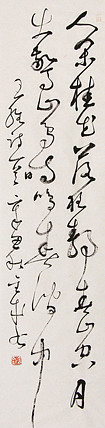 人闲桂花落夜静春山空月
出惊山鸟时鸣春涧中
王维诗